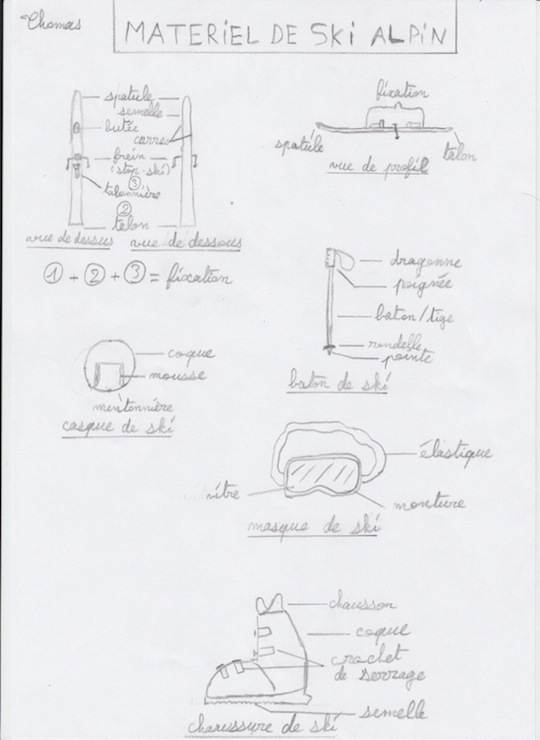 Thomas
MATERIEL DE SKI ALPIN
spatule
semelle
butée
carres
frein
(stop-ski)
③
talonnière
②
talon
vue de dessus
vue de dessous
① + ② + ③ = fixation
fixation
spatule
talon
vue de profil
dragonne
poignée
baton/tige
rondelle
pointe
baton de ski
coque
mousse
mentonnière
casque de ski
élastique
vitre
monture
masque de ski
chausson
coque
crochet
de serrage
semelle
chaussure de ski